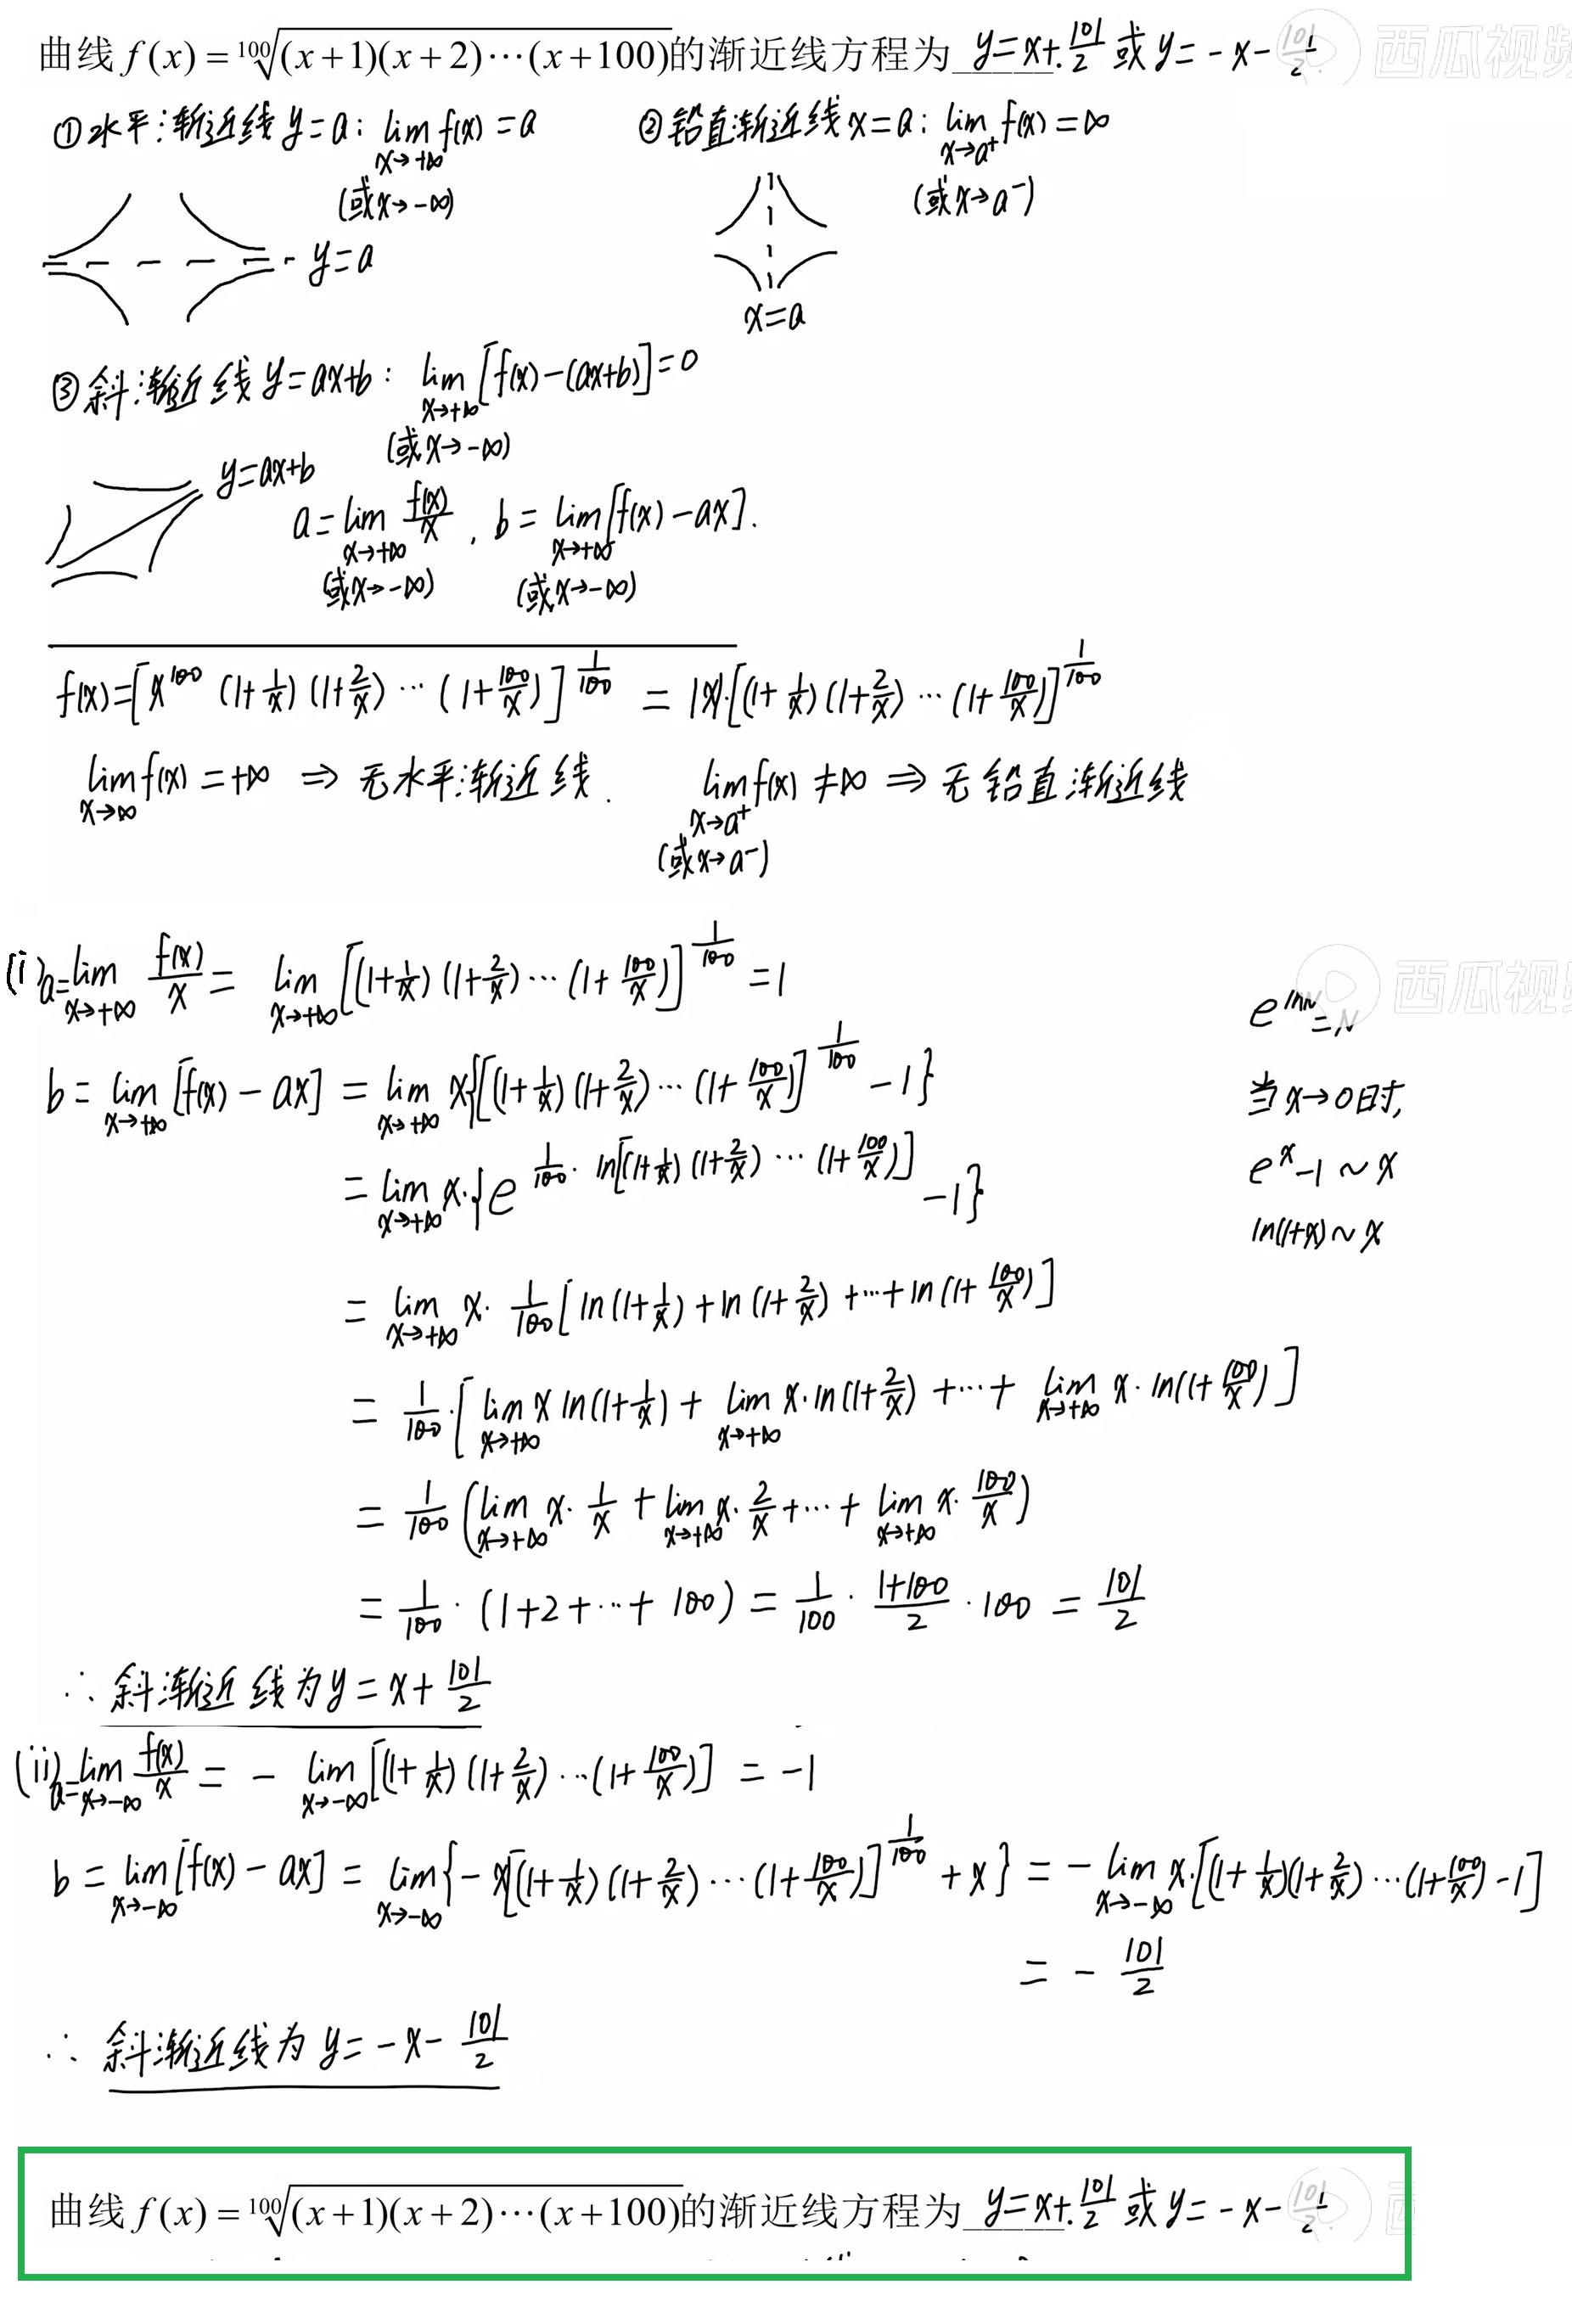 曲线 f(x) = ¹⁰⁰√((x+1)(x+2)⋯(x+100)) 的渐近线方程为 y=x+101/2 或 y=-x-101/2
西瓜视频
①水平渐近线 y=a: lim_{x→+∞} f(x) = a ②铅直渐近线 x=a: lim_{x→a⁺} f(x) = ∞
(或x→-∞) (或x→a⁻)
y=a
x=a
③斜渐近线 y=ax+b: lim_{x→+∞} [f(x)-(ax+b)]=0
(或x→-∞)
y=ax+b
a=lim_{x→+∞} f(x)/x , b=lim_{x→+∞} [f(x)-ax].
(或x→-∞) (或x→-∞)
f(x)=[x^100 (1+1/x)(1+2/x)⋯(1+100/x)]^{1/100} = |x|·[(1+1/x)(1+2/x)⋯(1+100/x)]^{1/100}
lim_{x→∞} f(x)=+∞ ⇒ 无水平渐近线. lim_{x→a⁺} f(x)≠∞ ⇒ 无铅直渐近线
(或x→a⁻)
(i) a=lim_{x→+∞} f(x)/x = lim_{x→+∞} [(1+1/x)(1+2/x)⋯(1+100/x)]^{1/100} =1
西瓜视频
e^{lnN}=N
b=lim_{x→+∞} [f(x)-ax] = lim_{x→+∞} x{[(1+1/x)(1+2/x)⋯(1+100/x)]^{1/100} -1}
当x→0时,
=lim_{x→+∞} x·{e^{1/100·ln[(1+1/x)(1+2/x)⋯(1+100/x)]} -1}
e^x-1~x
ln(1+x)~x
=lim_{x→+∞} x·1/100[ln(1+1/x)+ln(1+2/x)+⋯+ln(1+100/x)]
=1/100·[lim_{x→+∞} x ln(1+1/x)+lim_{x→+∞} x·ln(1+2/x)+⋯+lim_{x→+∞} x·ln(1+100/x)]
=1/100(lim_{x→+∞} x·1/x+lim_{x→+∞} x·2/x+⋯+lim_{x→+∞} x·100/x)
=1/100·(1+2+⋯+100)=1/100·(1+100)/2·100=101/2
∴斜渐近线为y=x+101/2
(ii) a=lim_{x→-∞} f(x)/x = -lim_{x→-∞} [(1+1/x)(1+2/x)⋯(1+100/x)] = -1
b=lim_{x→-∞} [f(x)-ax] = lim_{x→-∞} {-x[(1+1/x)(1+2/x)⋯(1+100/x)]^{1/100} +x} = -lim_{x→-∞} x·[(1+1/x)(1+2/x)⋯(1+100/x)-1]
=-101/2
∴斜渐近线为y=-x-101/2
曲线 f(x) = ¹⁰⁰√((x+1)(x+2)⋯(x+100)) 的渐近线方程为 y=x+101/2 或 y=-x-101/2